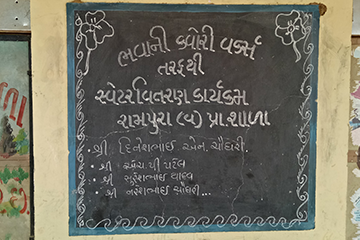 ભવાની ક્વોરી વર્ક્સ
તરફથી
સ્વેટર વિતરણ કાર્યક્રમ
રામપુરા (વ) પ્રા શાળા
• શ્રી. દિનેશભાઈ એન. ચૌધરી.
• શ્રી એચ પી પટેલ
• શ્રી સુરેશભાઈ યાદવ
• શ્રી નરેશભાઈ ચૌધરી...